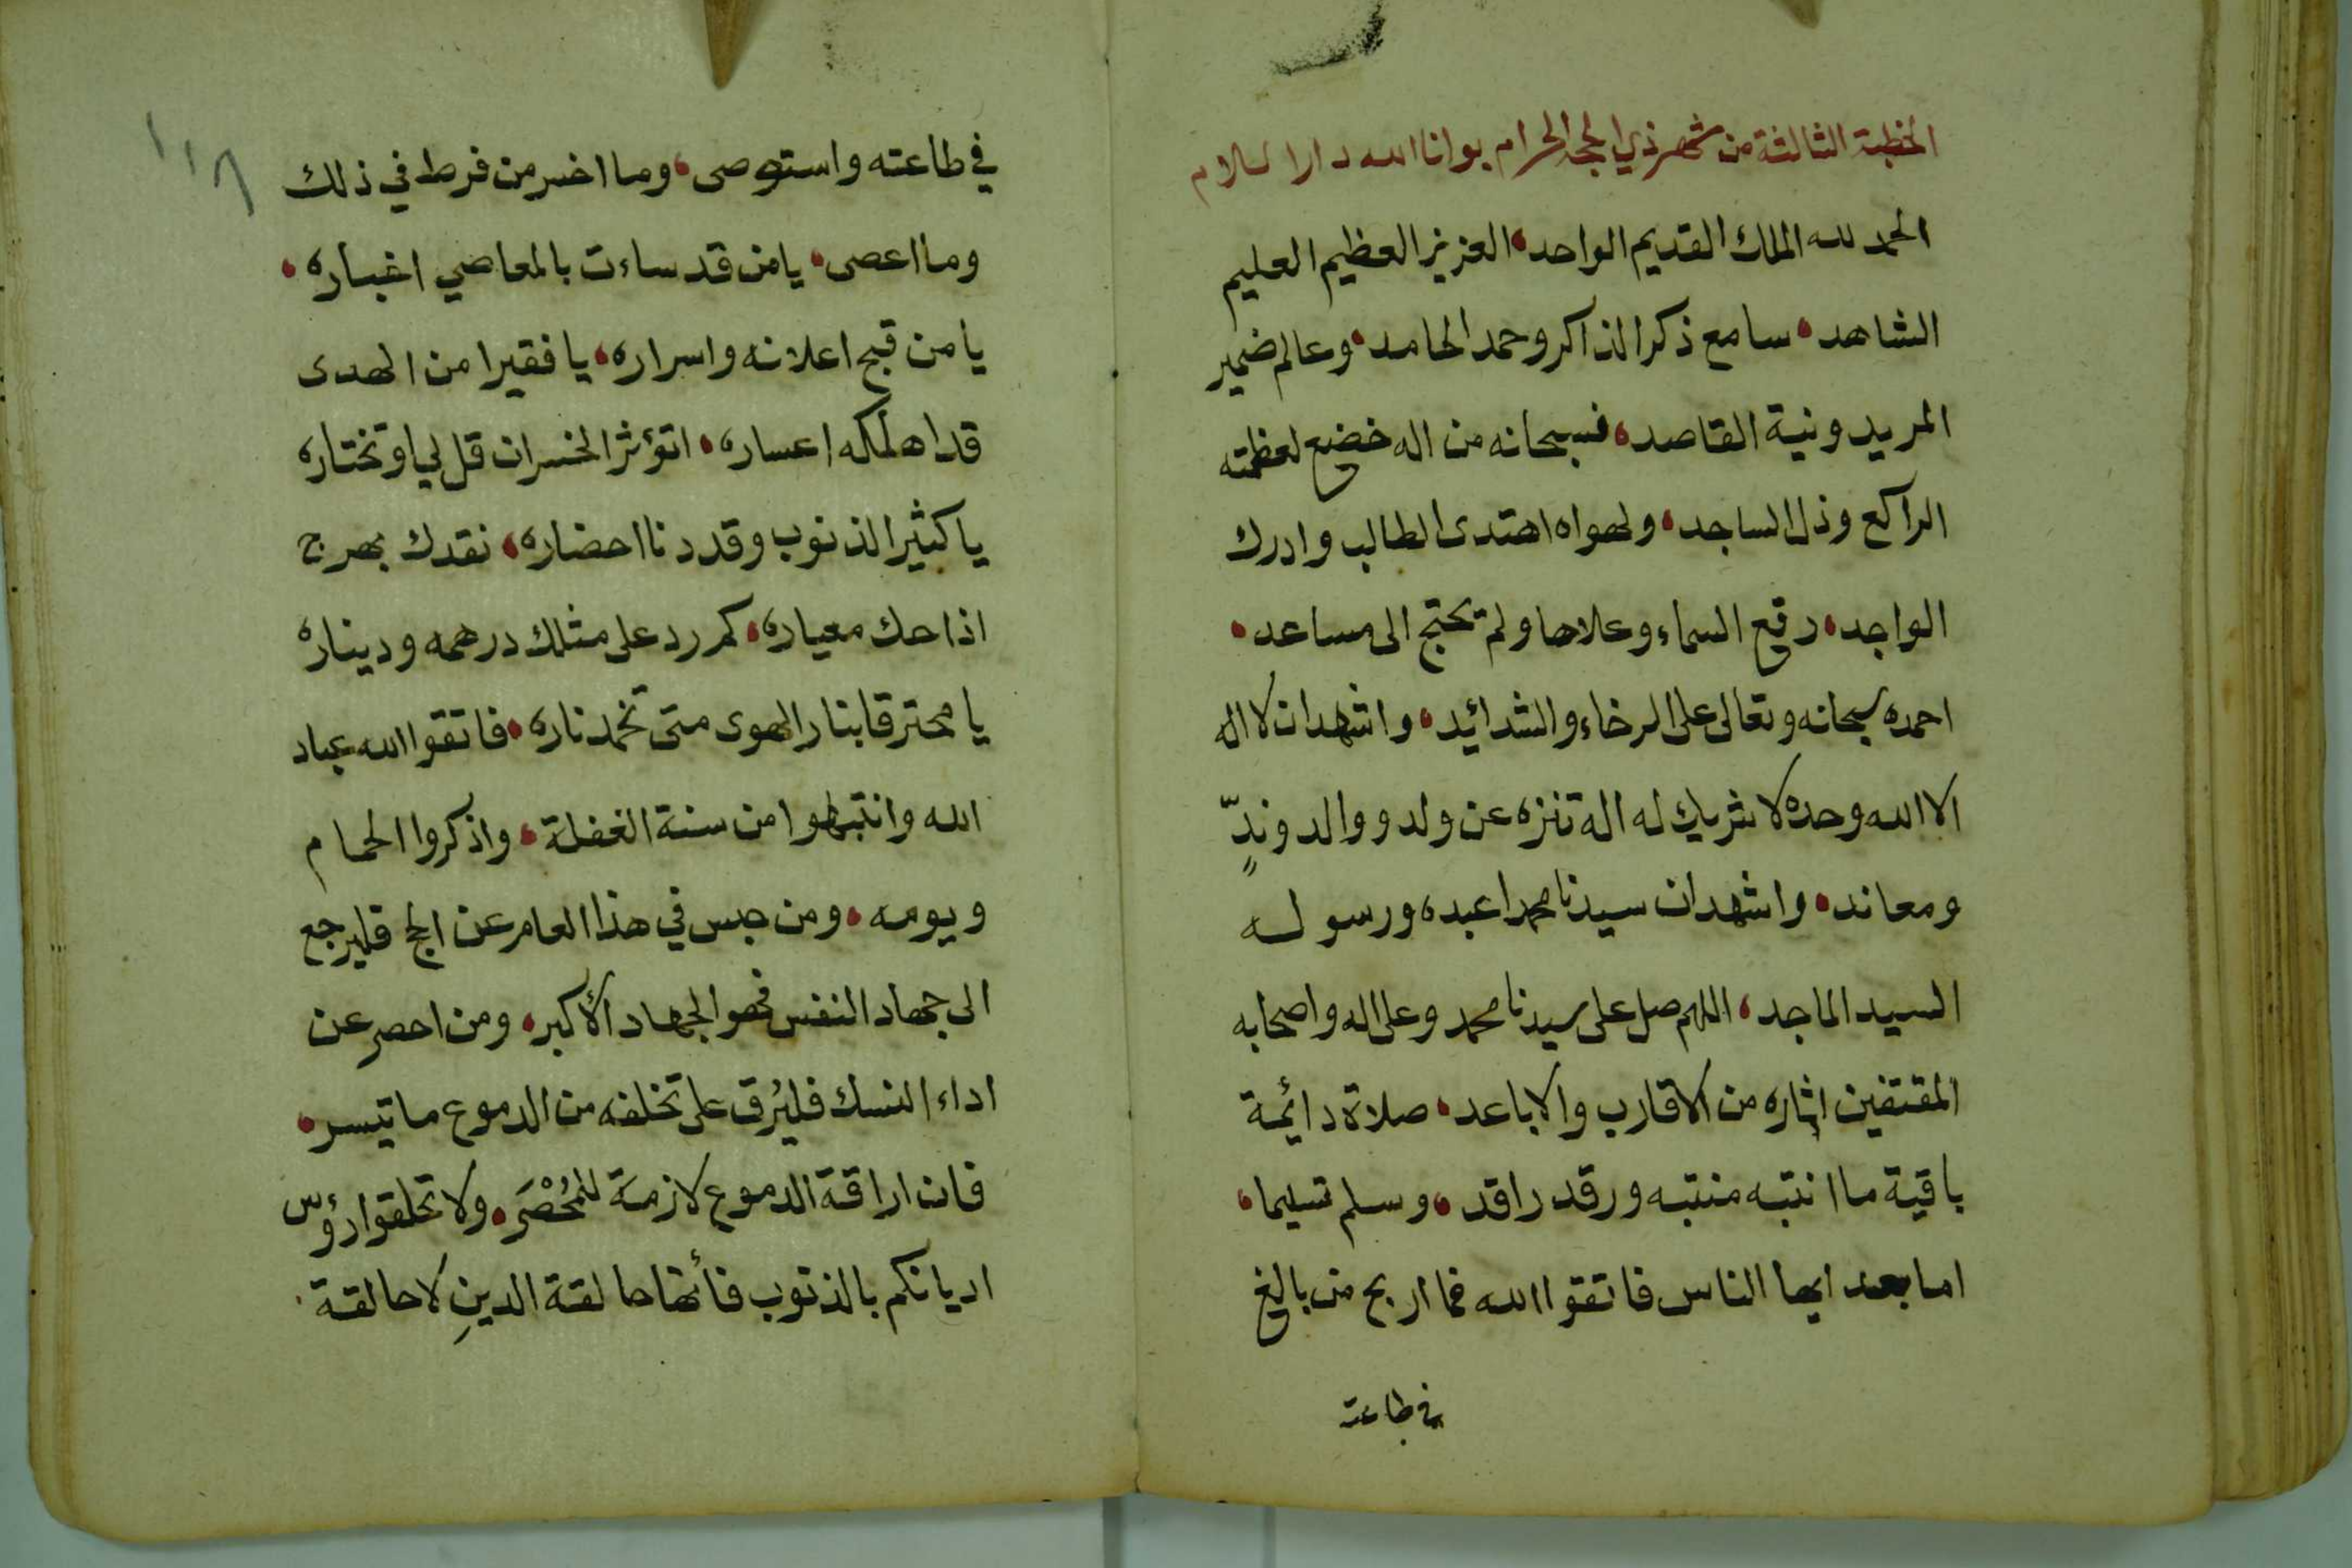 الخطبة الثالثة من شهر ذي الحجة الحرام بوانا الله دار السلام
الحمد لله الملك القديم الواحد، العزيز العظيم العليم
الشاهد، سامع ذكر الذاكر وحمد الحامد، وعالم ضمير
المريد ونية القاصد، فسبحانه من اله خضع لعظمته
الراكع وذل الساجد، ولهواه اهتدى الطالب وادرك
الواجد، رفع السماء وعلاها ولم تحتج الى مساعد،
احمده سبحانه وتعالى على الرخاء والشدائد، واشهد ان لا اله
الا الله وحده لا شريك له اله تنزه عن ولد ووالد وندٍّ
ومعاند، واشهد ان سيدنا محمدا عبده ورسوله
السيد الماجد، اللهم صل على سيدنا محمد وعلى اله واصحابه
المقتفين اثاره من الاقارب والاباعد، صلاة دائمة
باقية ما انتبه منتبه ورقد راقد، وسلم تسليما،
اما بعد ايها الناس فاتقوا الله فما اربح من بالغ
في طاعته
١١٨
في طاعته واستوصى، وما اخسر من فرط في ذلك
وما اعصى، يا من قد ساءت بالمعاصي اخباره،
يا من قبح اعلانه واسراره، يا فقيرا من الهدى
قد اهلكه اعساره، اتؤثر الخسران قل لي او تختاره
يا كثير الذنوب وقد دنا احضاره، نقدك بهرج
اذا حك معياره، كم رد على مثلك درهمه ودينازه
يا محترقا بنار الهوى متى تخمد ناره، فاتقوا الله عباد
الله وانتبهوا من سنة الغفلة، واذكروا الحمام
ويومه، ومن حبس في هذا العام عن الحج فليرجع
الى جهاد النفس فهو الجهاد الأكبر، ومن احصر عن
اداء النسك فليُرق على تخلفه من الدموع ما تيسر،
فان اراقة الدموع لازمة للمُحْصَر، ولا تحلقوا رؤس
اديانكم بالذنوب فأنها حالقة الدينِ لا حالقة